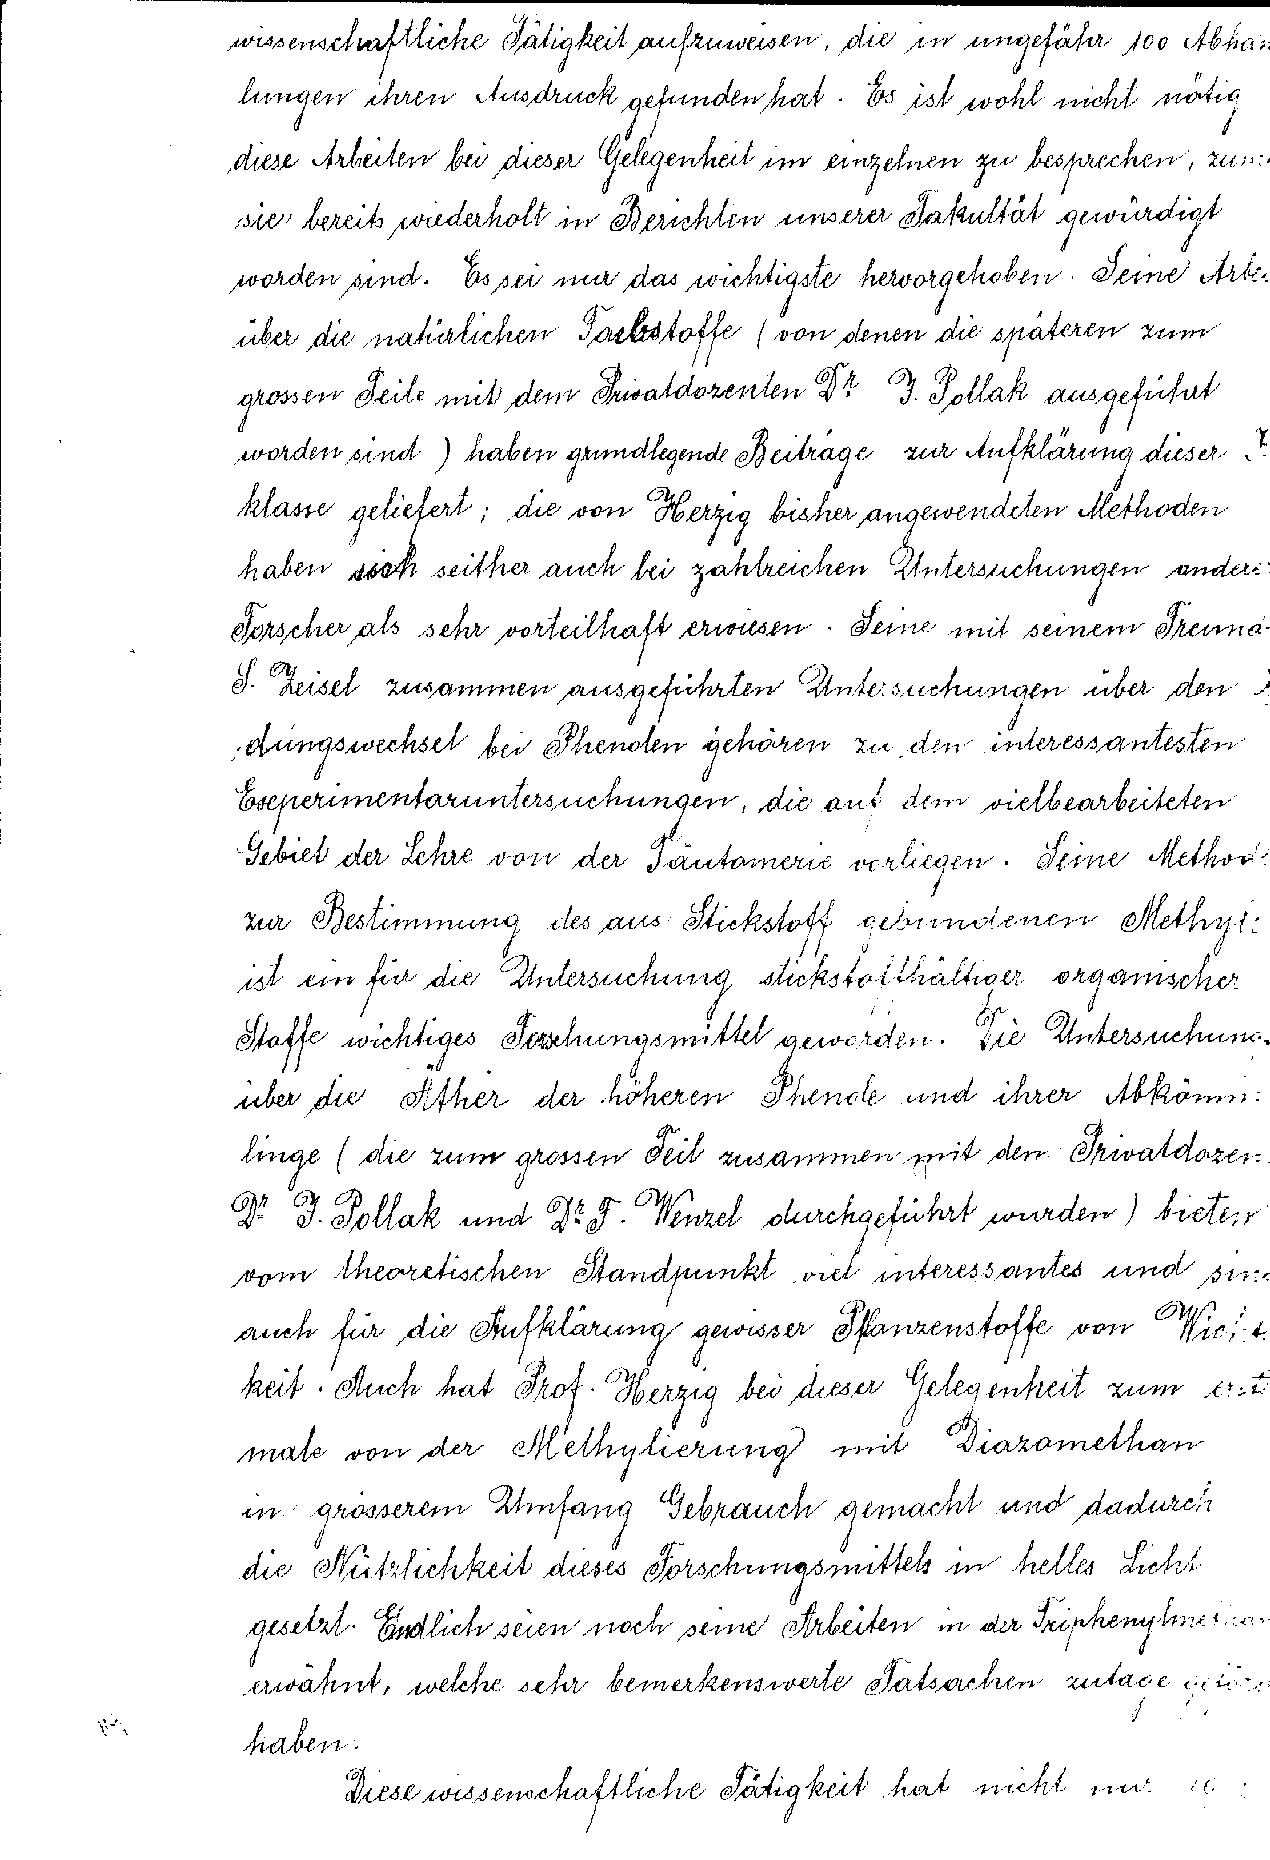 wissenschaftliche Tätigkeit aufzuweisen, die in ungefähr 100 Abhan
lungen ihren Ausdruck gefunden hat. Es ist wohl nicht nötig
diese Arbeiten bei dieser Gelegenheit im einzelnen zu besprechen, zum
sie bereits wiederholt in Berichten unserer Fakultät gewürdigt
worden sind. Es sei nur das wichtigste hervorgehoben. Seine Arbe
über die natürlichen Farbstoffe (von denen die späteren zum
grossen Teile mit dem Privatdozenten Dr. J. Pollak ausgeführt
worden sind) haben grundlegende Beiträge zur Aufklärung dieser
klasse geliefert; die von Herzig bisher angewendeten Methoden
haben sich seither auch bei zahlreichen Untersuchungen andere
Forscher als sehr vorteilhaft erwiesen. Seine mit seinem Freund
S. Zeisel zusammen ausgeführten Untersuchungen über den
dungswechsel bei Phenolen gehören zu den interessantesten
Experimentaruntersuchungen, die auf dem vielbearbeiteten
Gebiet der Lehre von der Tautomerie vorliegen. Seine Method
zur Bestimmung des aus Stickstoff gebundenen Methyl
ist ein für die Untersuchung stickstoffhältiger organischer
Stoffe wichtiges Forschungsmittel geworden. Die Untersuchung
über die Äther der höheren Phenole und ihrer Abkömm:
linge (die zum grossen Teil zusammen mit den Privatdozen
Dr. J. Pollak und Dr. F. Wenzel durchgeführt wurden) bieten
vom theoretischen Standpunkt viel interessantes und sin
auch für die Aufklärung gewisser Pflanzenstoffe von Wicht
keit. Auch hat Prof. Herzig bei dieser Gelegenheit zum erst
male von der Methylierung mit Diazomethan
in grösserem Umfang Gebrauch gemacht und dadurch
die Nützlichkeit dieses Forschungsmittels in helles Licht
gesetzt. Endlich seien noch seine Arbeiten in der Triphenylmethan
erwähnt, welche sehr bemerkenswerte Tatsachen zutage geför
haben.
Diese wissenschaftliche Tätigkeit hat nicht nur